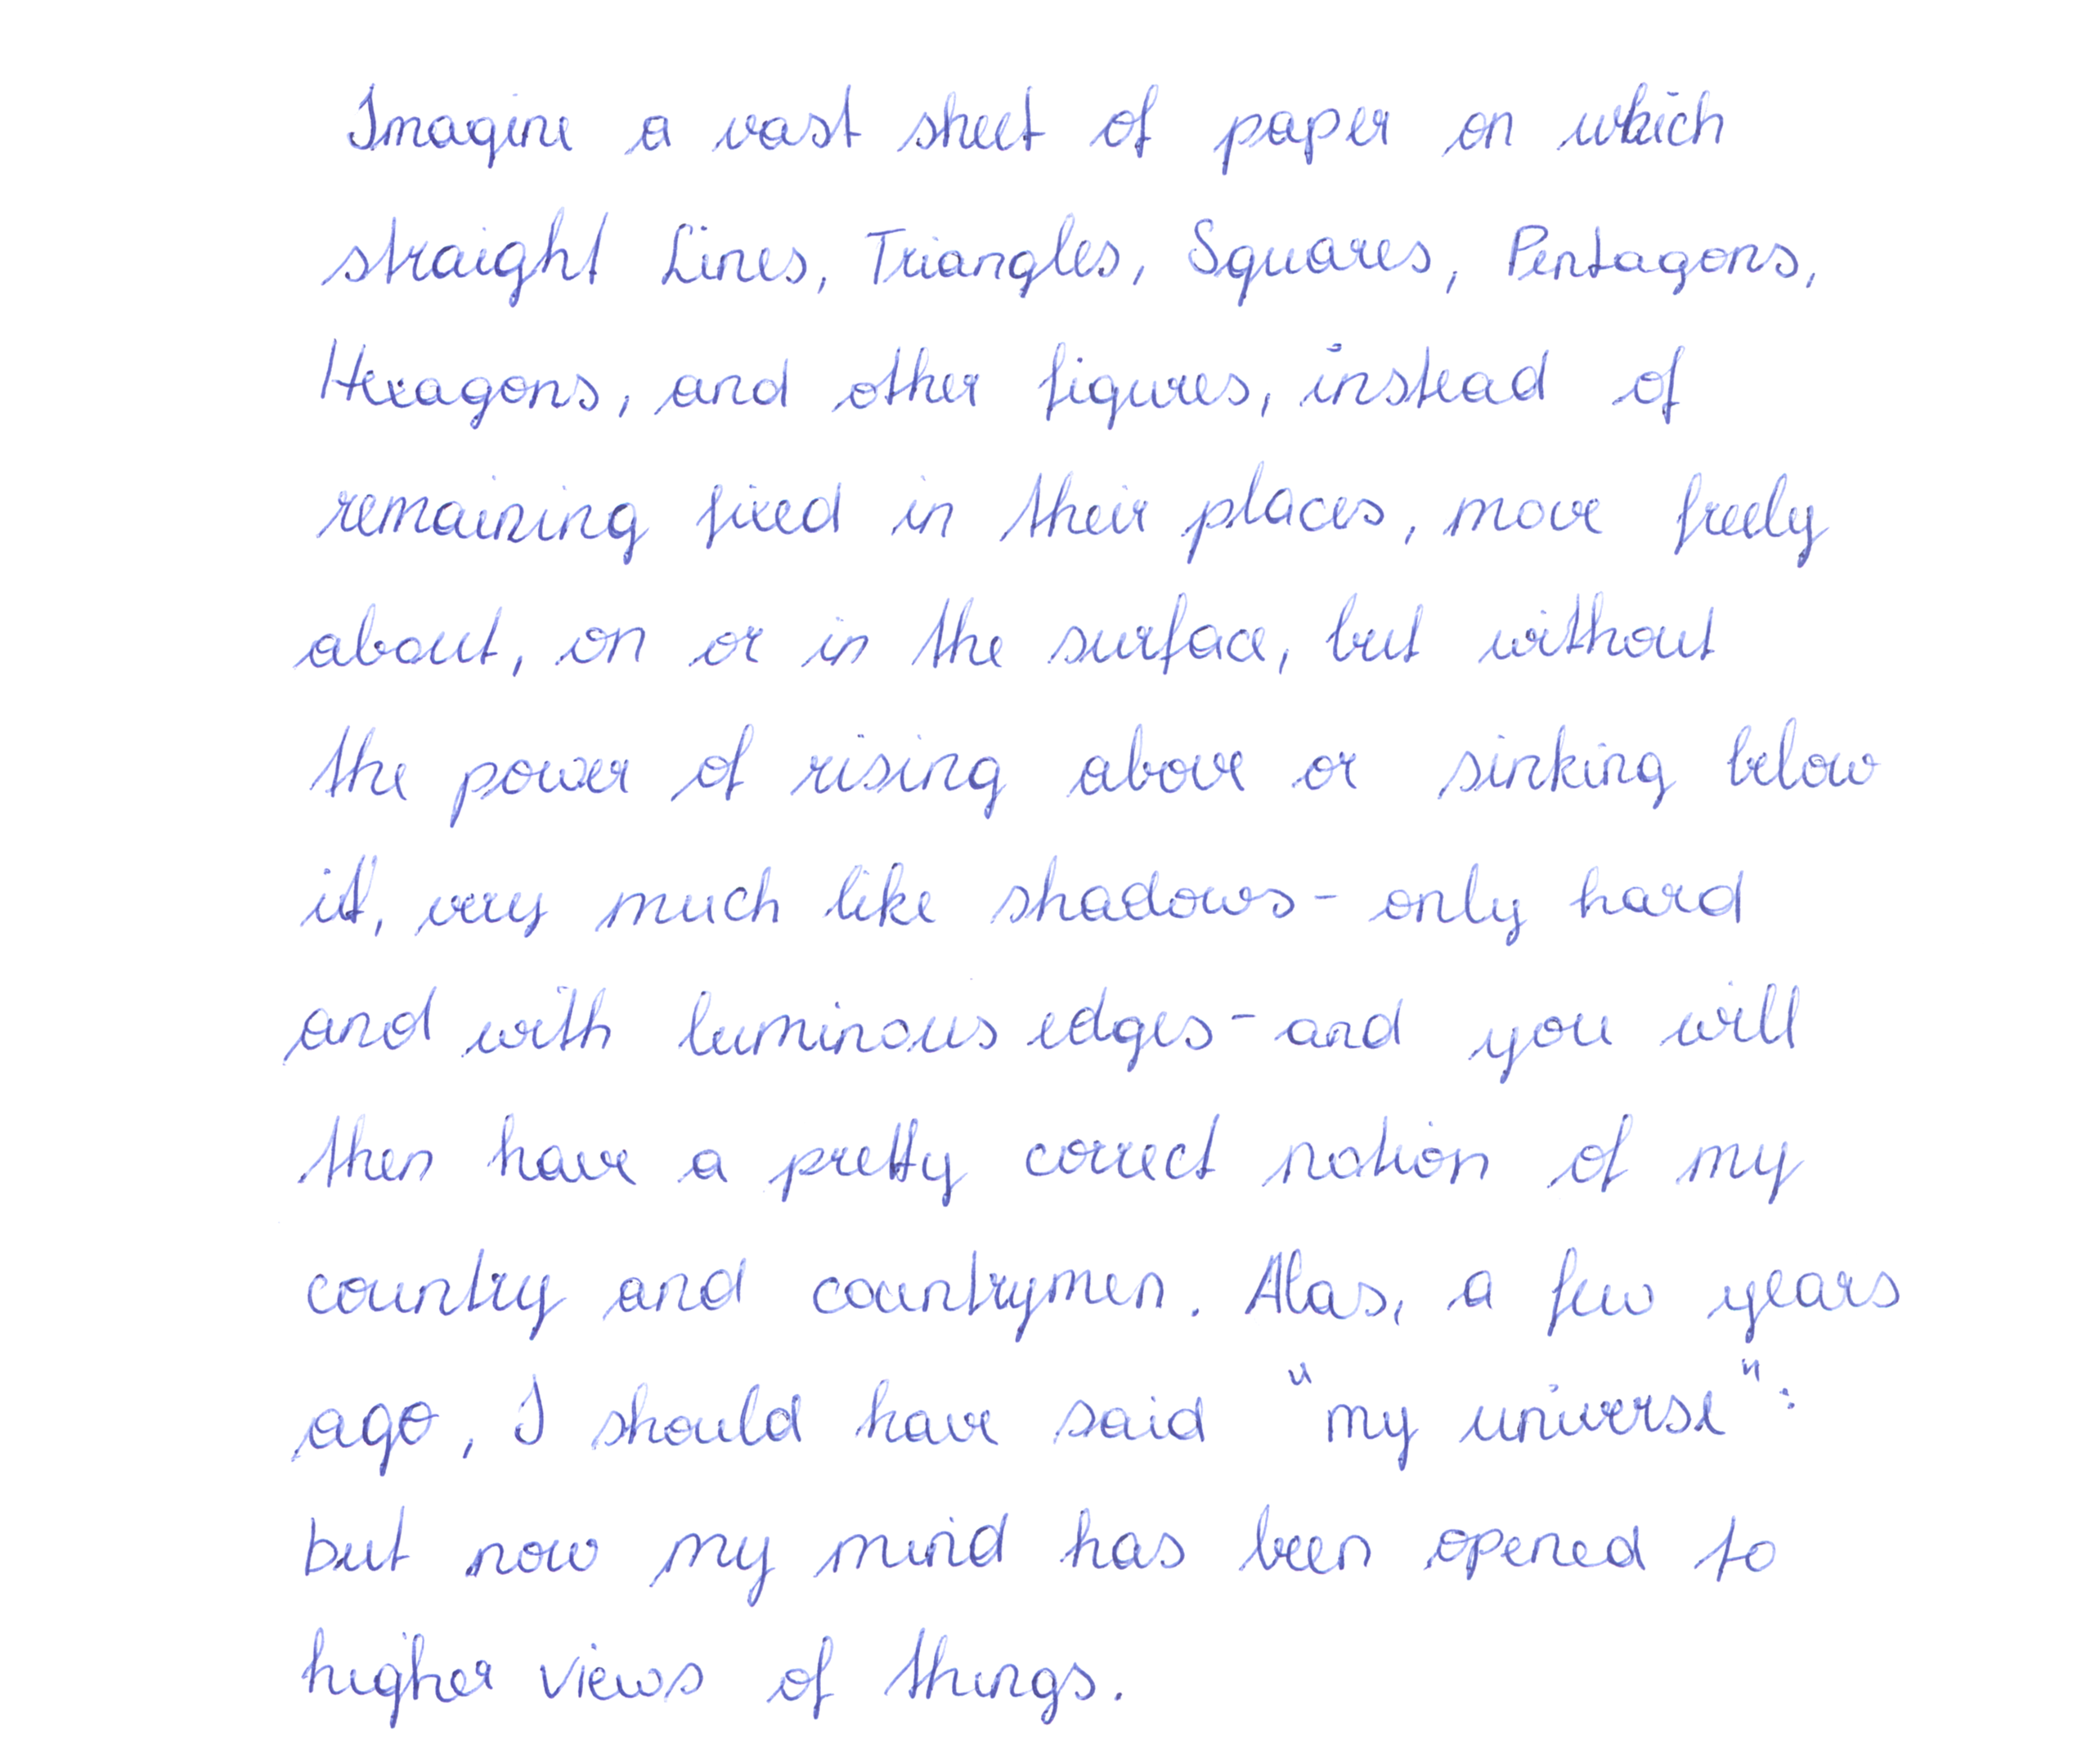 Imagine a vast sheet of paper on which
straight Lines, Triangles, Squares, Pentagons,
Hexagons, and other figures, instead of
remaining fixed in their places, move freely
about, on or in the surface, but without
the power of rising above or sinking below
it, very much like shadows - only hard
and with luminous edges - and you will
then have a pretty correct notion of my
country and countrymen. Alas, a few years
ago, I should have said "my universe":
but now my mind has been opened to
higher views of things.